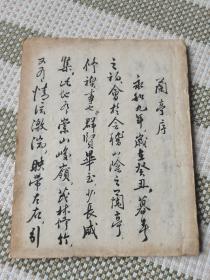 蘭亭序
永和九年，歲在癸丑，暮春
之初，會於会稽山陰之蘭亭，
修禊事也。群賢畢至，少長咸
集。此地有崇山峻嶺，茂林修竹，
又有清流激湍，映帶左右，引